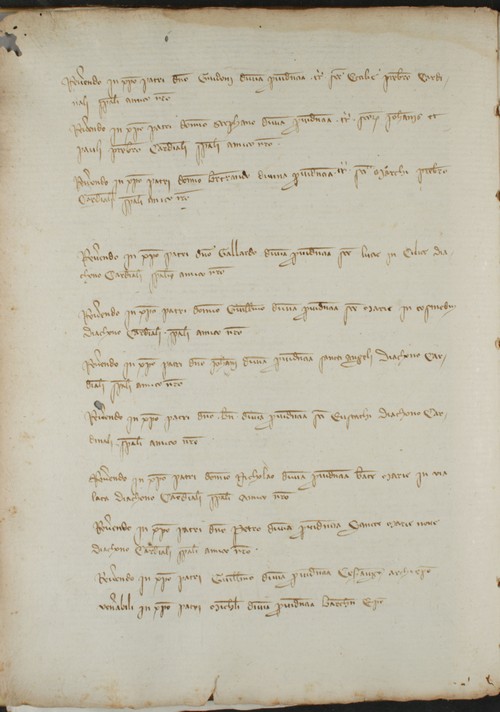 Reverendo in xpo patri dno Guidoni divina providencia tt. sce Cecilie prbro Cardi-
nali spali amico nro
Reverendo in xpo patri domino Stephano divina providencia tt. scorum Johannis et
Pauli prbro Cardinali spali amico nro.
Reverendo in xpo patri domino Bertrando divina providencia tt. sci Marchi prbro
Cardinali spali amico nro
Reverendo in xpo patri dno Gallardo divina providencia sce lucie in Cilice dia-
chono Cardinali spali amico nro
Reverendo in xpo patri domino Guillmo divina providencia sce Marie in cosmedin
diachono Cardinali spali amico nro
Reverendo in xpo patri dno Johanni divina providencia sancti angeli diachono Car-
dinali spali amico nro
Reverendo in xpo patri dno divina providencia sci Eustachii diachono Car-
dinali spali amico nro.
Reverendo in xpo patri domino Nicholao divina providencia bate Marie in via
lata diachono Cardinali spali amico nro
Reverendo in xpo patri dno Petro divina providencia Sancte Marie nove
diachono Cardinali spali amico nro.
Reverendo in xpo patri Guillmo divina providencia Cesaraug archiepo
Venerabili in xpo patri Michli divina providencia Barchn Epo